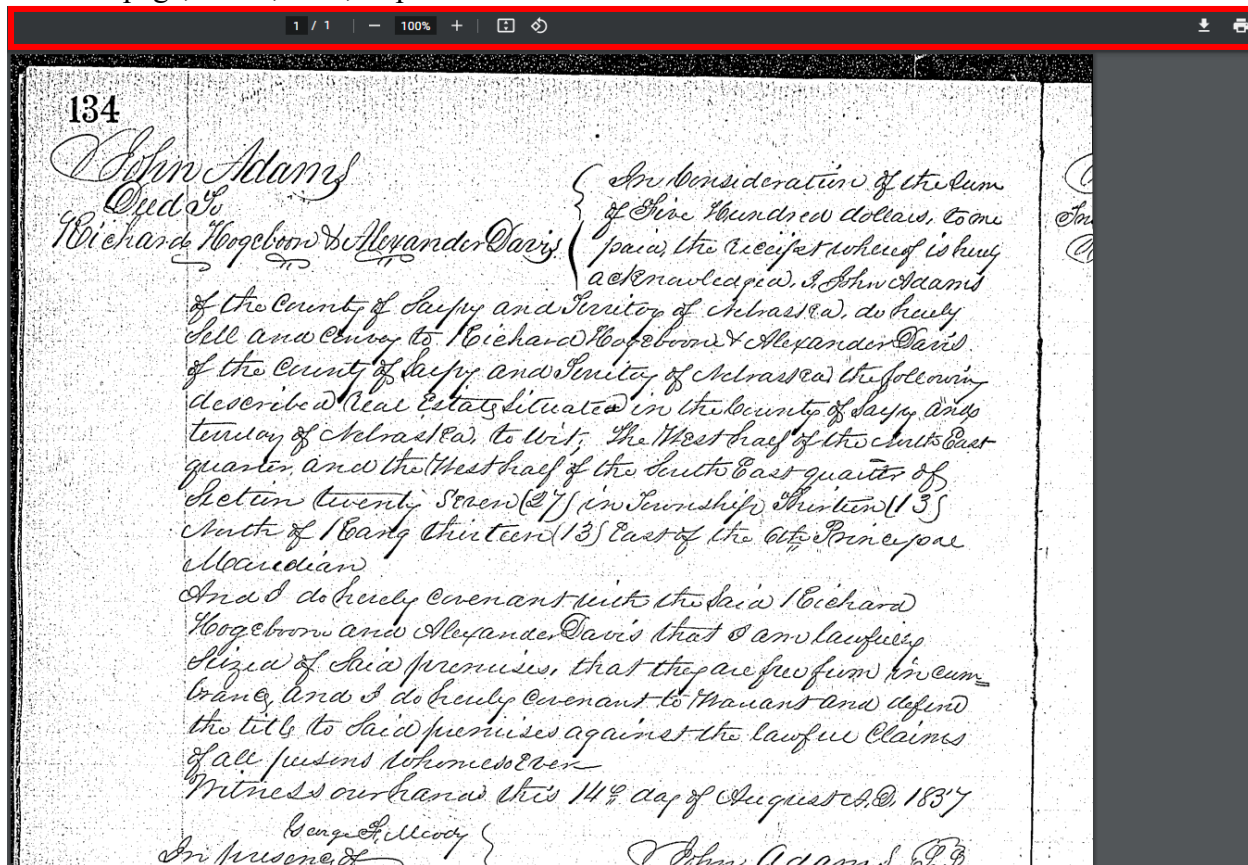 1 / 1 — 100% +
134
John Adams
Deed To
Richard Hogeboon & Alexander Davis
In Consideration of the Sum
of Five Hundred dollars, to me
paid, the receipt whereof is herey
acknowledged, I John Adams
of the County of Sarpy and Territoy of Nebraska, do herely
Sell and Convey to Richard Hogeboon & Alexander Davis
of the County of Sarpy and Territoy of Nebraska the following
described Real Estate Situated in the County of Sarpy and
territoy of Nebraska, to wit; The West half of the North East
quarter, and the West half of the South East quarter of
Section twenty Seven (27) in Township Thirteen (13)
North of Rang thirteen (13) East of the 6th Principal
Maredian
And I do herely covenant with the Said Richard
Hogeboon and Alexander Davis that I am lawfully
Seized of Said premises, that they are free from incum=
branc, and I do herely covenant to Warrant and defend
the title to Said premises against the lawful Claims
of all persons whomesoever
Witness our hand this 14th day of August A.D. 1857
George F. Meody
In presence of
John Adams